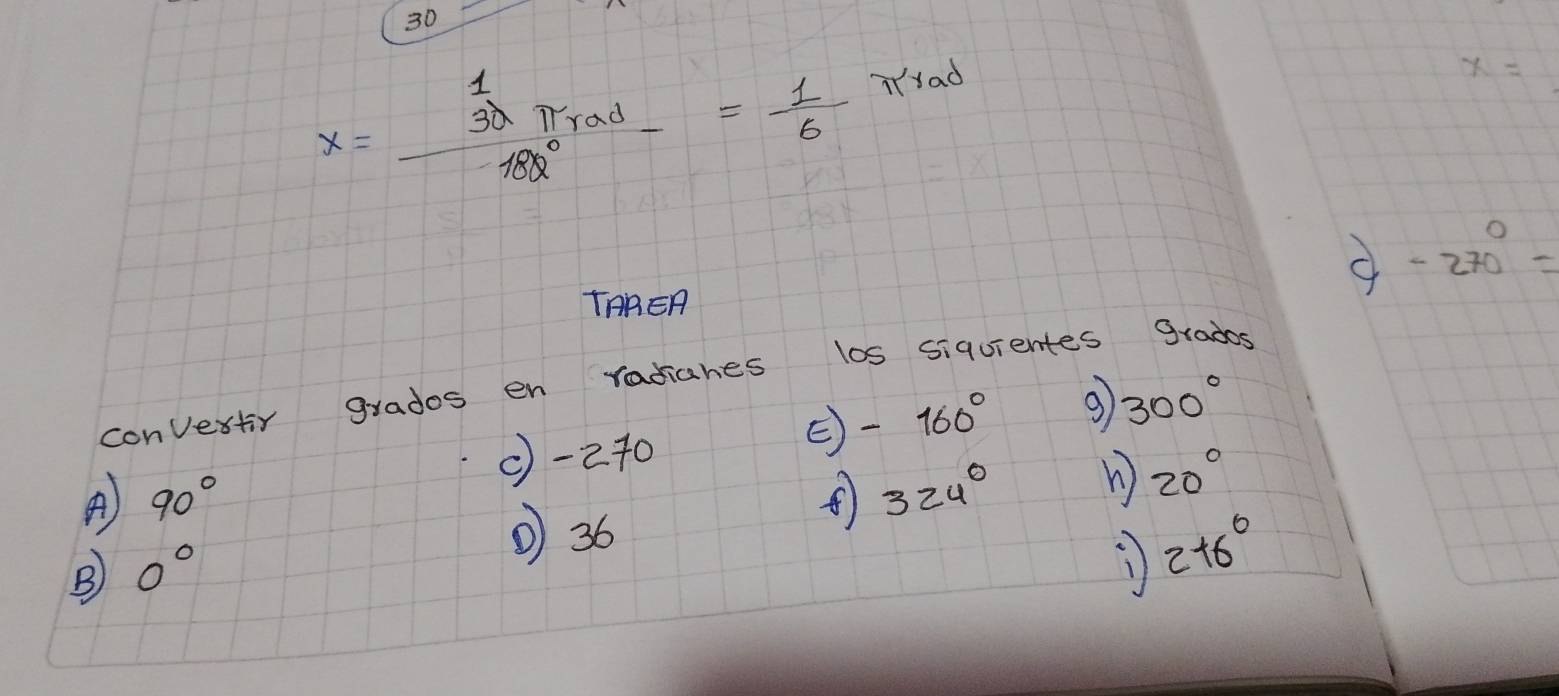 30
x = 1 30 πrad / 180° = 1/6 πrad
x =
c) -270° =
TAREA
convertir grados en radianes los siguientes grados
A) 90° c) -270 E) - 160° g) 300°
B) 0° D) 36 f) 324° h) 20°
i) 216°